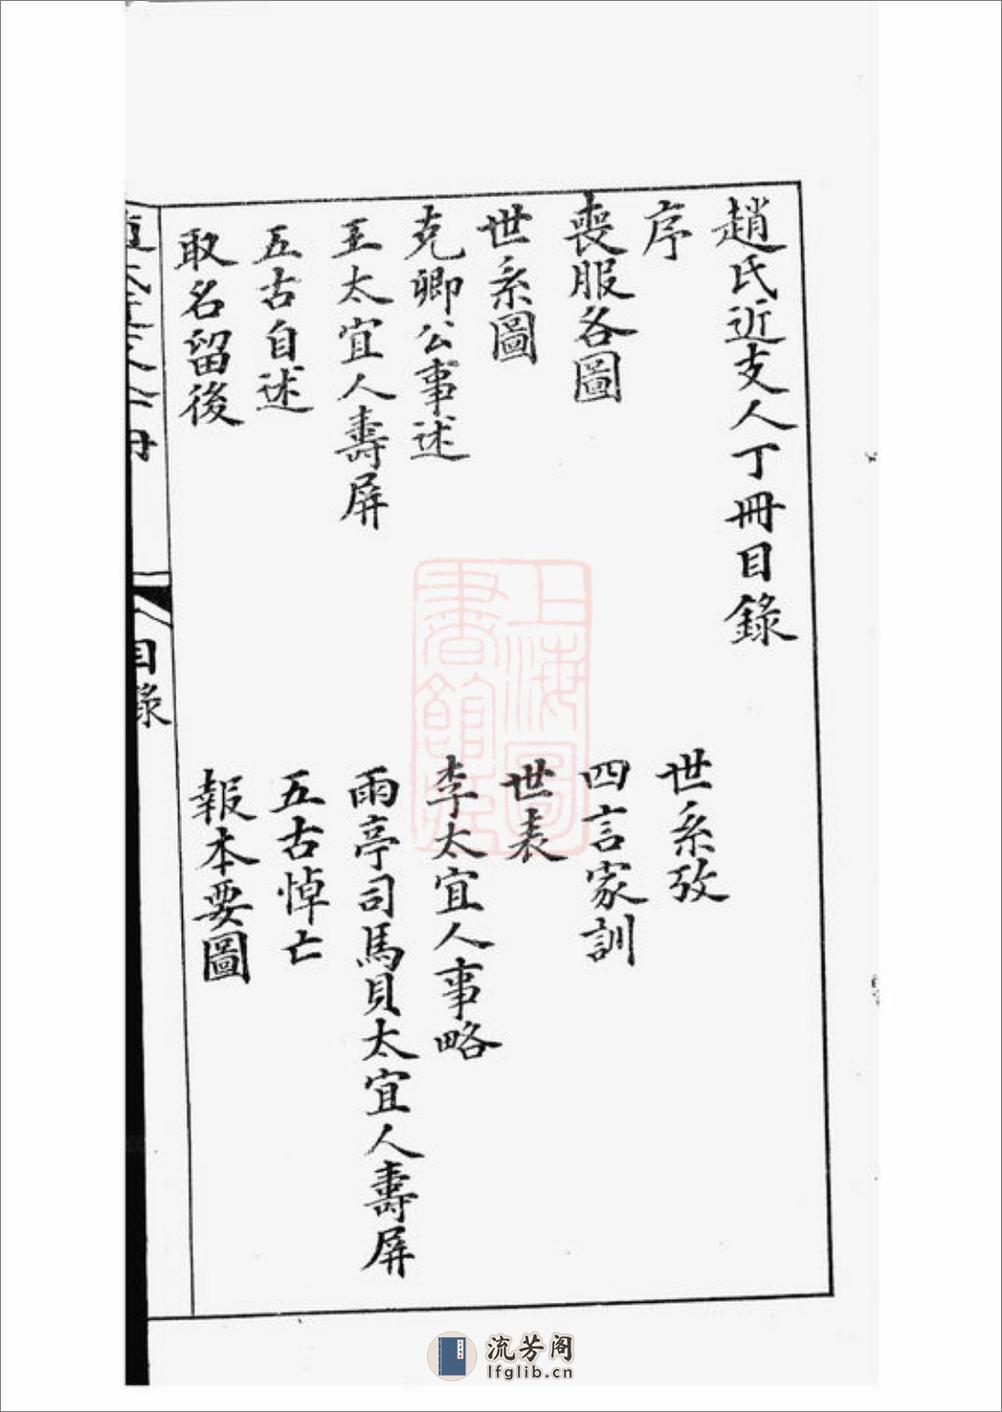 趙氏近支人丁冊目錄
序
世系攷
喪服各圖
四言家訓
世系圖
世表
克卿公事述
李太宜人事略
王太宜人壽屏
雨亭司馬貝太宜人壽屏
五古自述
五古悼亡
取名留後
報本要圖
目錄
上海圖
書館藏
流芳阁
lfglib.cn